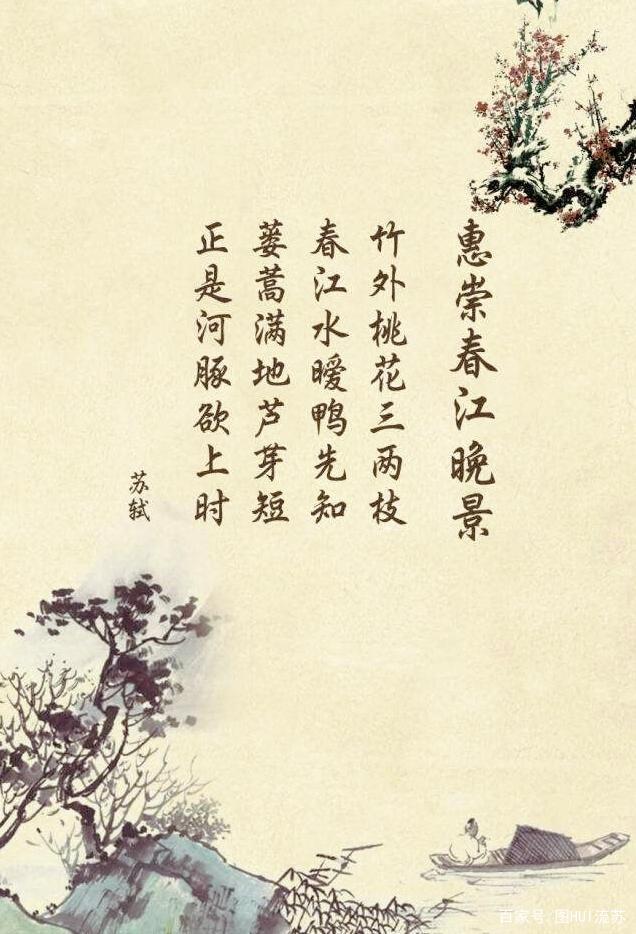 惠崇春江晚景
竹外桃花三两枝
春江水暖鸭先知
蒌蒿满地芦芽短
正是河豚欲上时
苏轼
百家号·图HUI流苏